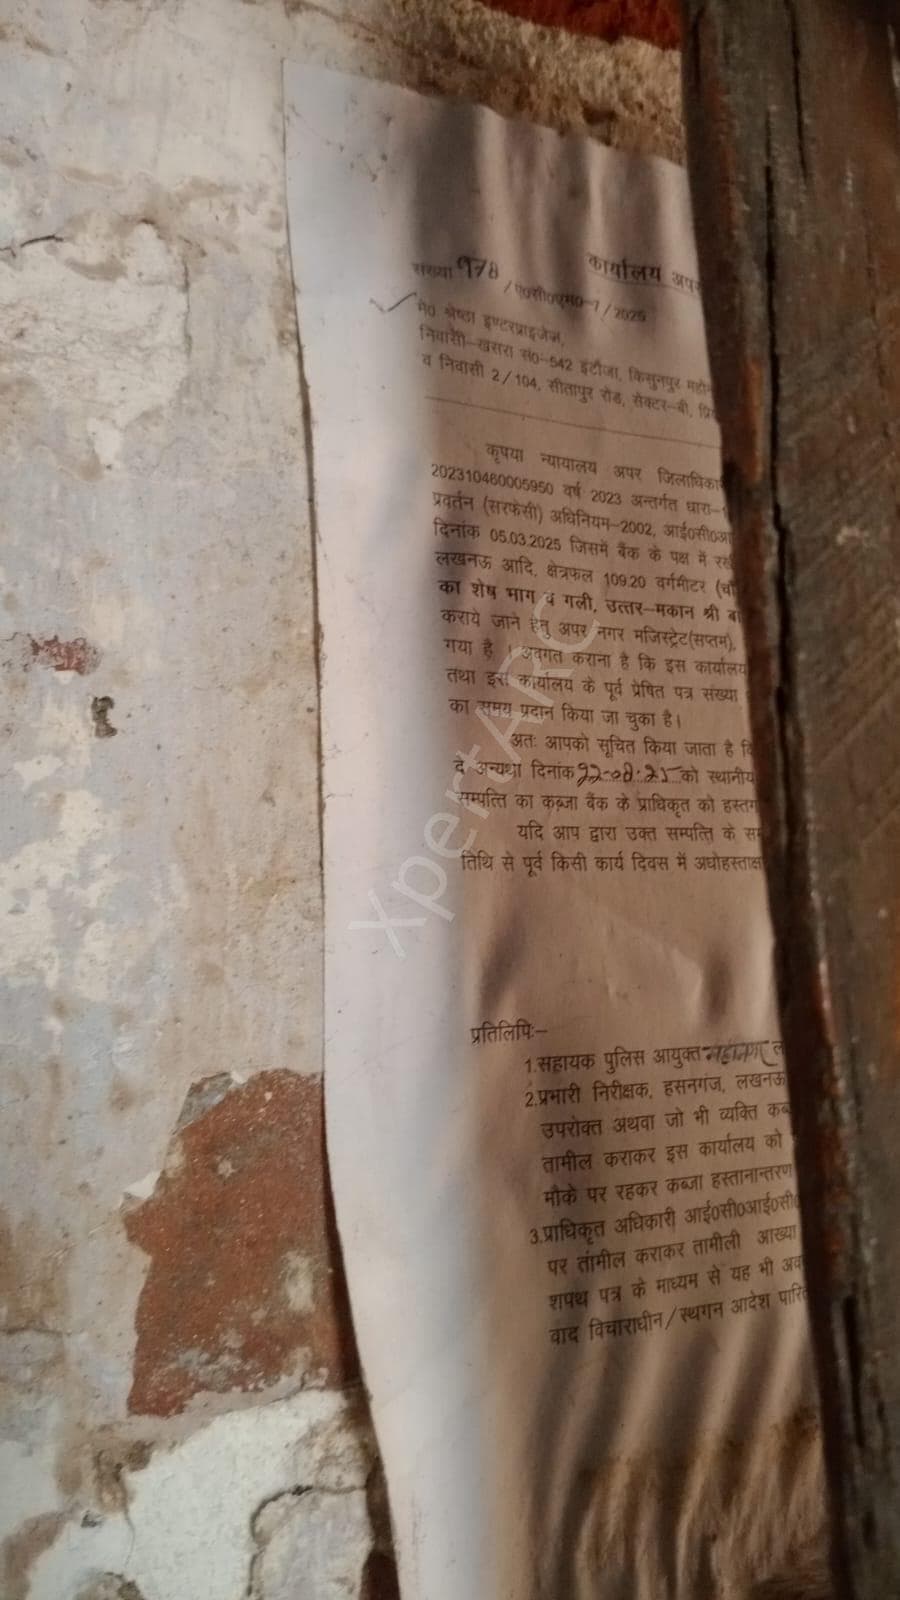 कार्यालय अपर
संख्या 978 / ए0सी0एम0-7 / 2025
मे0 श्रेष्ठा इण्टरप्राइजेज,
निवासी-खसरा सं0-542 इंटौजा, किसुनपुर
व निवासी 2/104, सीतापुर रोड, सेक्टर-बी,
कृपया न्यायालय अपर जिलाधिकारी
202310460005950 वर्ष 2023 अन्तर्गत धारा-
प्रवर्तन (सरफेसी) अधिनियम-2002, आई0सी0आ
दिनांक 05.03.2025 जिसमें बैंक के पक्ष में
लखनऊ आदि, क्षेत्रफल 109.20 वर्गमीटर
का शेष भाग व गली, उत्तर-मकान श्री
कराये जाने हेतु अपर नगर मजिस्ट्रेट(सप्तम),
गया है। अवगत कराना है कि इस कार्यालय
तथा इस कार्यालय के पूर्व प्रेषित पत्र संख्या
का समय प्रदान किया जा चुका है।
अतः आपको सूचित किया जाता है
दे अन्यथा दिनांक को स्थानीय
सम्पत्ति का कब्जा बैंक के प्राधिकृत को
यदि आप द्वारा उक्त सम्पत्ति के
तिथि से पूर्व किसी कार्य दिवस में अधोहस्ताक्ष
प्रतिलिपिः-
1.सहायक पुलिस आयुक्त महानगर
2.प्रभारी निरीक्षक, हसनगंज, लखनऊ
उपरोक्त अथवा जो भी व्यक्ति
तामील कराकर इस कार्यालय को
मौके पर रहकर कब्जा हस्तानान्तरण
3.प्राधिकृत अधिकारी आई0सी0आई0सी0
पर तामील कराकर तामीली आख्या
शपथ पत्र के माध्यम से यह भी
वाद विचाराधीन/स्थगन आदेश
XpertARC